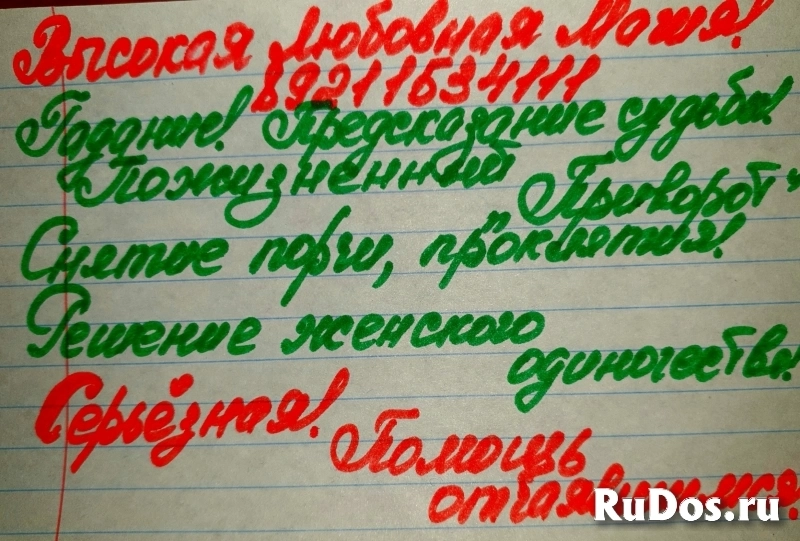 Высокая Любовная Магия!
89211534111
Гадание! Предсказание судьбы!
"Пожизненный Приворот"
Снятие порчи, проклятия!
Решение женского
одиночества!
Серьёзная!
Помощь
отчаявшимся!
RuDos.ru